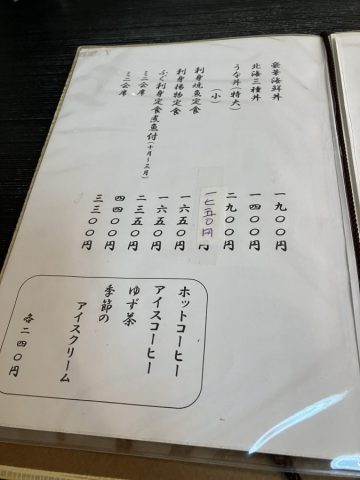 豪華海鮮丼 一九〇〇円
北海三種丼 一四〇〇円
うな丼(特大) 二九〇〇円
(小) 一七五〇円
刺身焼魚定食 一六五〇円
刺身揚物定食 一六五〇円
ふぐ刺身定食煮魚付(十月～三月) 二三五〇円
ミニ会席 四四〇〇円
ミニ会席 三三〇〇円
ホットコーヒー
アイスコーヒー
ゆず茶
季節の
アイスクリーム
各二四〇円